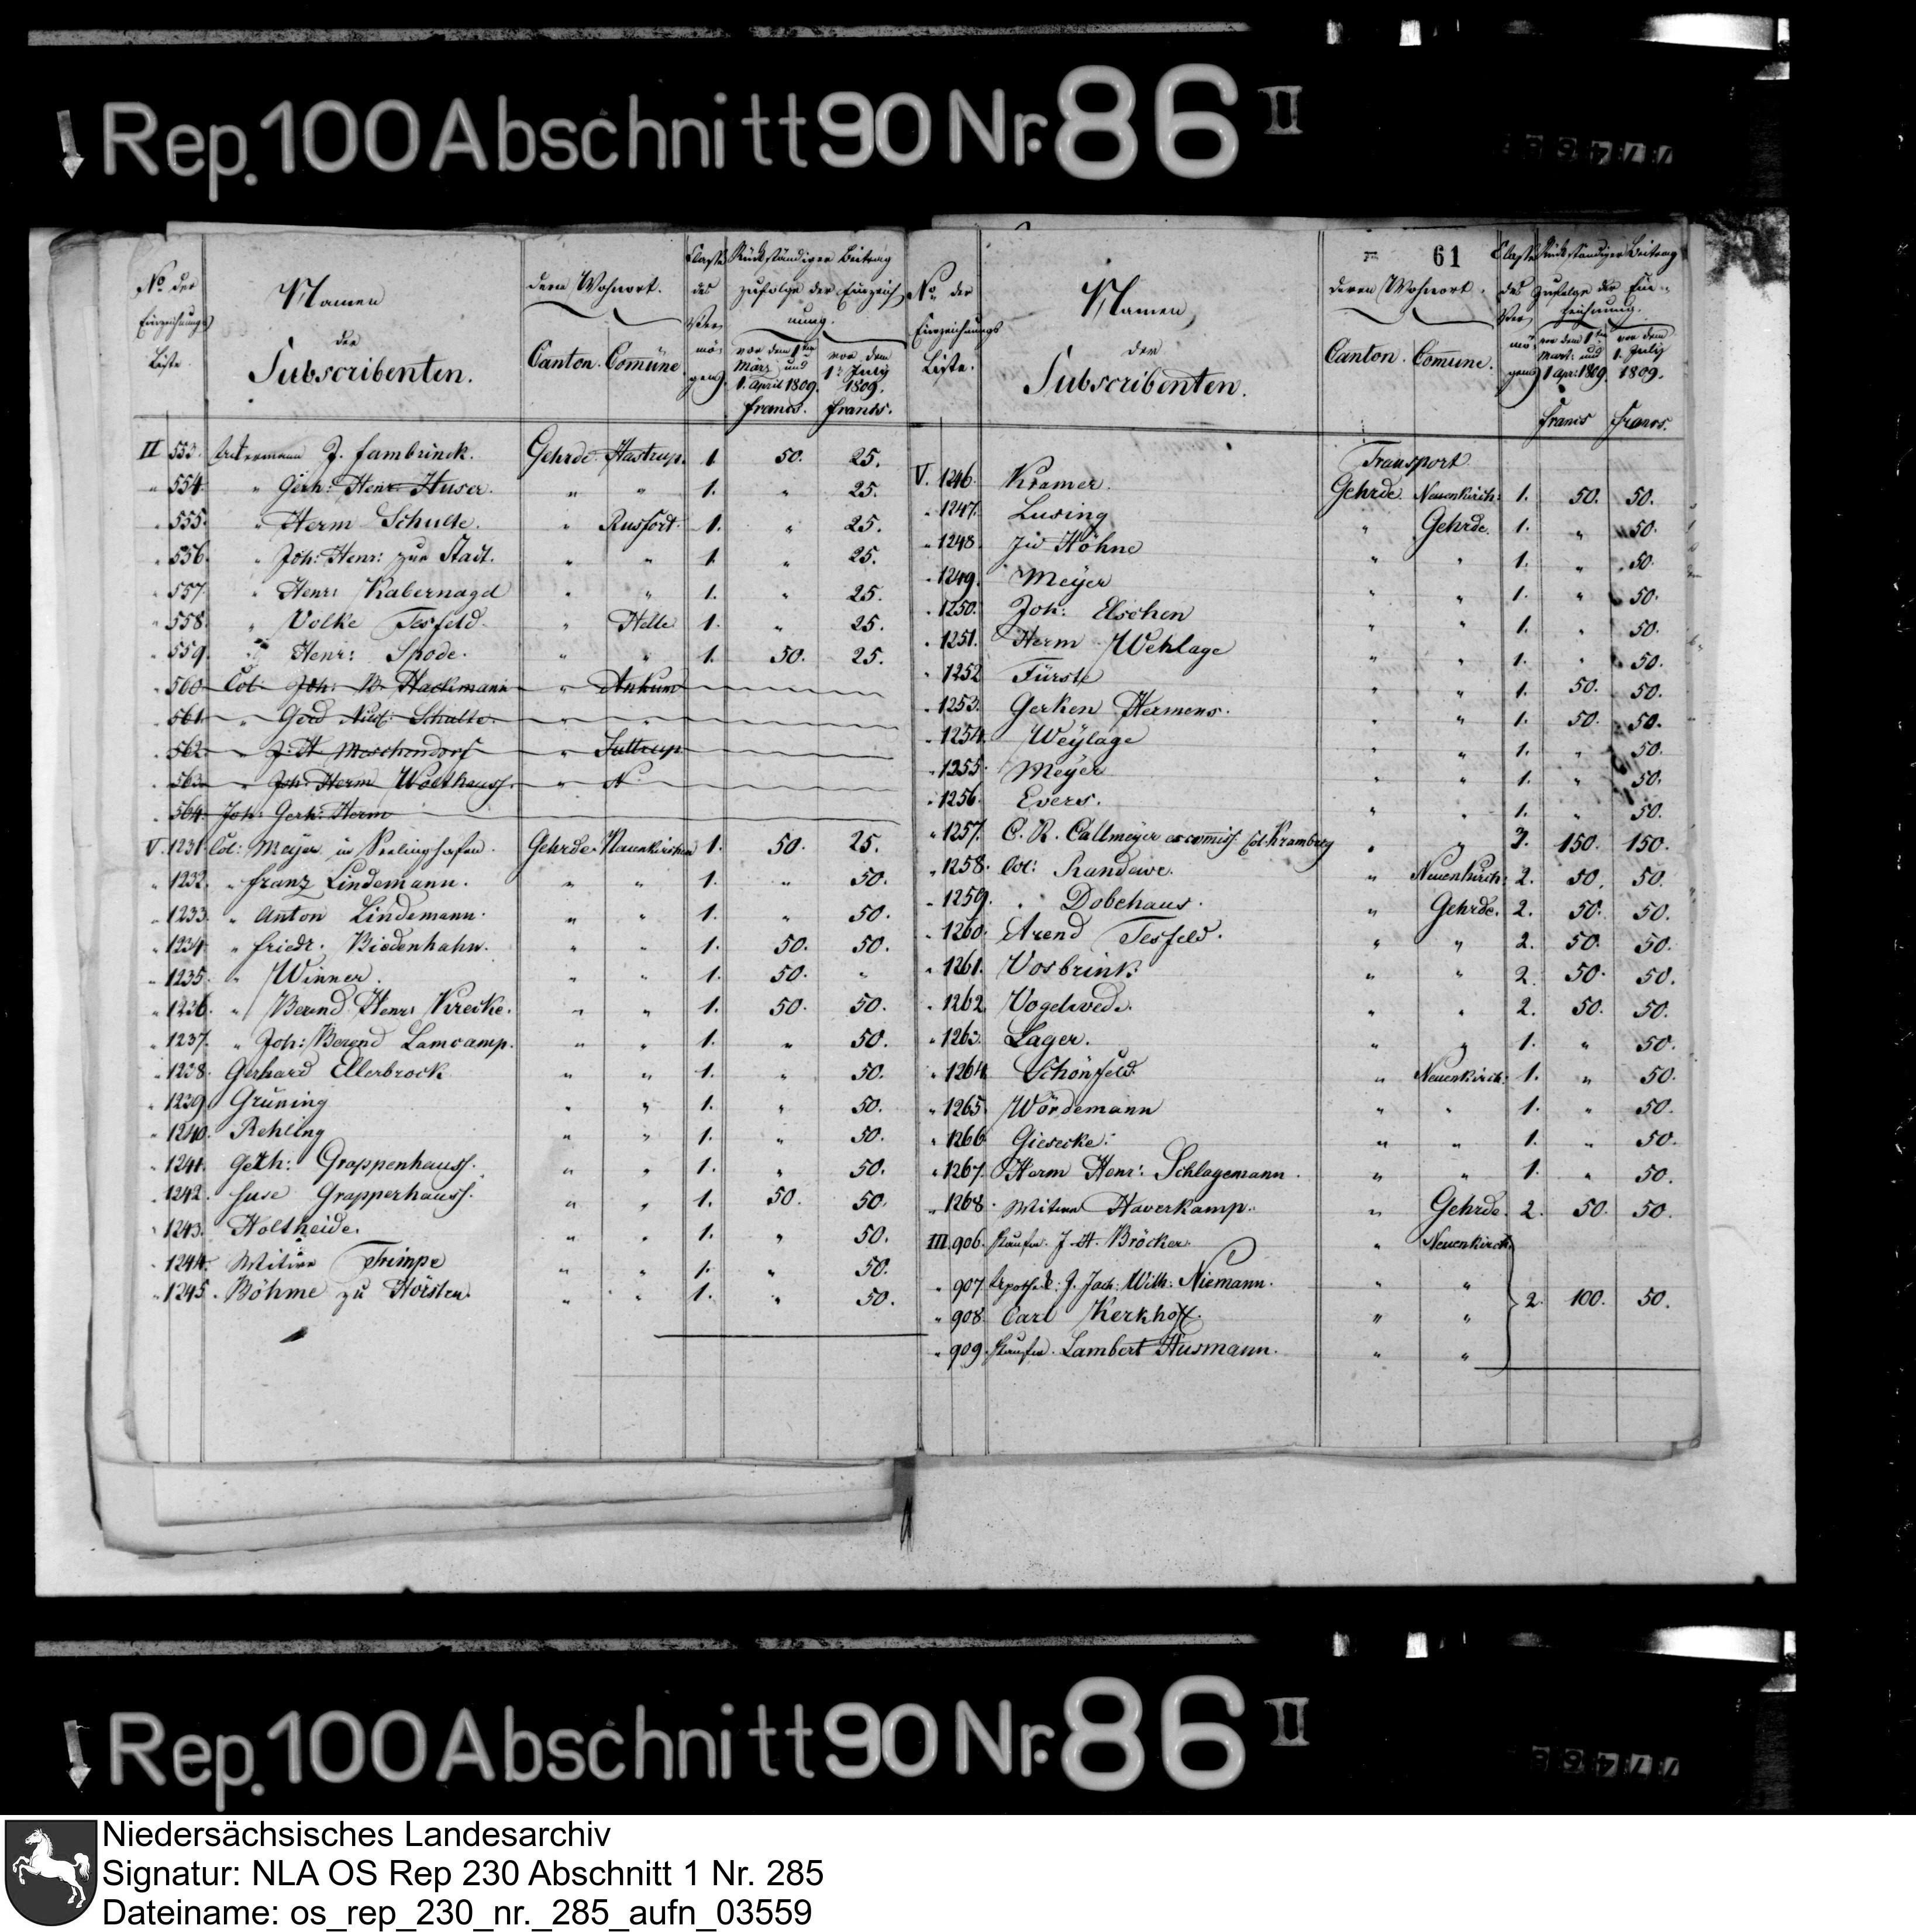 Rep. 100 Abschnitt 90 Nr. 86 II
No der Einzeichnungs Liste.
Namen der Subscribenten.
deren Wohnort.
Canton. Com̄une.
Classe des Vermögens
Rückständiger Beitrag zufolge der Einzeichnung.
vor dem 1ten März und 1. April 1809. francs.
vor dem 1. July 1809. francs.
II 553. J. Fambrinck. Gehrde Hastrup. 1. 50. 25.
" 554. " Gerh: Henr Huser. " " 1. " 25.
" 555. " Herm Schulte. " Rusfort. 1. " 25.
" 556. " Joh: Henr: zur Stadt. " " 1. " 25.
" 557. " Henr: Kabernagel " " 1. " 25.
" 558. " Volke Tesfeld. " Helle 1. " 25.
" 559. " Henr: Spode. " " 1. 50. 25.
" 560 Col. Joh: W. Hackmann " Ankum
" 561. " Gerd Schulte. " "
" 562 " J. H Meschendorf " Suttrup
" 563 " Joh: Herm Wolthauss. " N.
" 564. Joh: Gerh: Herm
V. 1231. Col: Meyer in " Gehrde. Neuenkirchen 1. 50. 25.
" 1232. " franz Lindemann. " " 1. " 50.
" 1233. " Anton Lindemann. " " 1. " 50.
" 1234. " friedr. Biedenhahn. " " 1. 50. 50.
" 1235. " Winner. " " 1. 50. "
" 1236. " Berend Henr: Krecke. " " 1. 50. 50.
" 1237. " Joh: Berend Lamcamp. " " 1. " 50.
" 1238. Gerhard Ellerbrock " " 1. " 50.
" 1239. Grüning " " 1. " 50.
" 1240. Rehling " " 1. " 50.
" 1241. Gerh: Grappenhauss. " " 1. " 50.
" 1242. Grapperhauss. " " 1. 50. 50.
" 1243. Holtheide. " " 1. " 50.
" 1244. Witwe Trimpe " " 1. " 50.
" 1245. Böhme zu Hörsten. " " 1. " 50.
61
No. der Einzeichnungs Liste.
Namen der Subscribenten.
deren Wohnort.
Canton. Com̄une.
Classe des Vermögens
Rückständiger Beitrag zufolge der Einzeichnung.
vor dem 1ten Mart. und 1 Apr: 1809. francs
vor dem 1. July 1809. francs.
Transport
V. 1246. Kramer. Gehrde Neuenkirch: 1. 50. 50.
" 1247. Lusing " Gehrde. 1. " 50.
" 1248. Höhne " " 1. " 50.
" 1249. Meyer " " 1. " 50.
" 1250. Joh: Elschen " " 1. " 50.
" 1251. Herm Wehlage " " 1. " 50.
" 1252 Fürste " " 1. 50. 50.
" 1253. Gerken Hermens. " " 1. 50. 50.
" 1254. Weylage " " 1. " 50.
" 1255. Meyer " " 1. " 50.
" 1256. Evers. " " 1. " 50.
" 1257. C. R. Callmeyer ex com̄iss. Col. Kramberg " " 3. 150. 150.
" 1258. Col: Randewe. " Neuenkirch: 2. 50. 50.
" 1259. " Dobehaus. " Gehrde. 2. 50. 50.
" 1260. Arend Tesfeld. " " 2. 50. 50.
" 1261. Vosbrink " " 2. 50. 50.
" 1262. Vogelwede. " " 2. 50. 50.
" 1263. Lager. " " 1. " 50.
" 1264 Schönfeld " Neuenkirch: 1. " 50.
" 1265. Wördemann " " 1. " 50.
" 1266 Giesecke. " " 1. " 50.
" 1267. Herm Henr: Schlagemann. " " 1. " 50.
" 1268. Witwe Haverkamp. " Gehrde. 2. 50. 50.
III 906. Kaufm. J. H. Bröcker. " Neuenkirch
" 907. Apothek: J. Joch: Wilh: Niemann. " "
" 908. Carl Kerkhoff. " " 2. 100. 50.
" 909. Kaufm. Lambert Husmann. " "
Rep. 100 Abschnitt 90 Nr. 86 II
Niedersächsisches Landesarchiv
Signatur: NLA OS Rep 230 Abschnitt 1 Nr. 285
Dateiname: os_rep_230_nr._285_aufn_03559